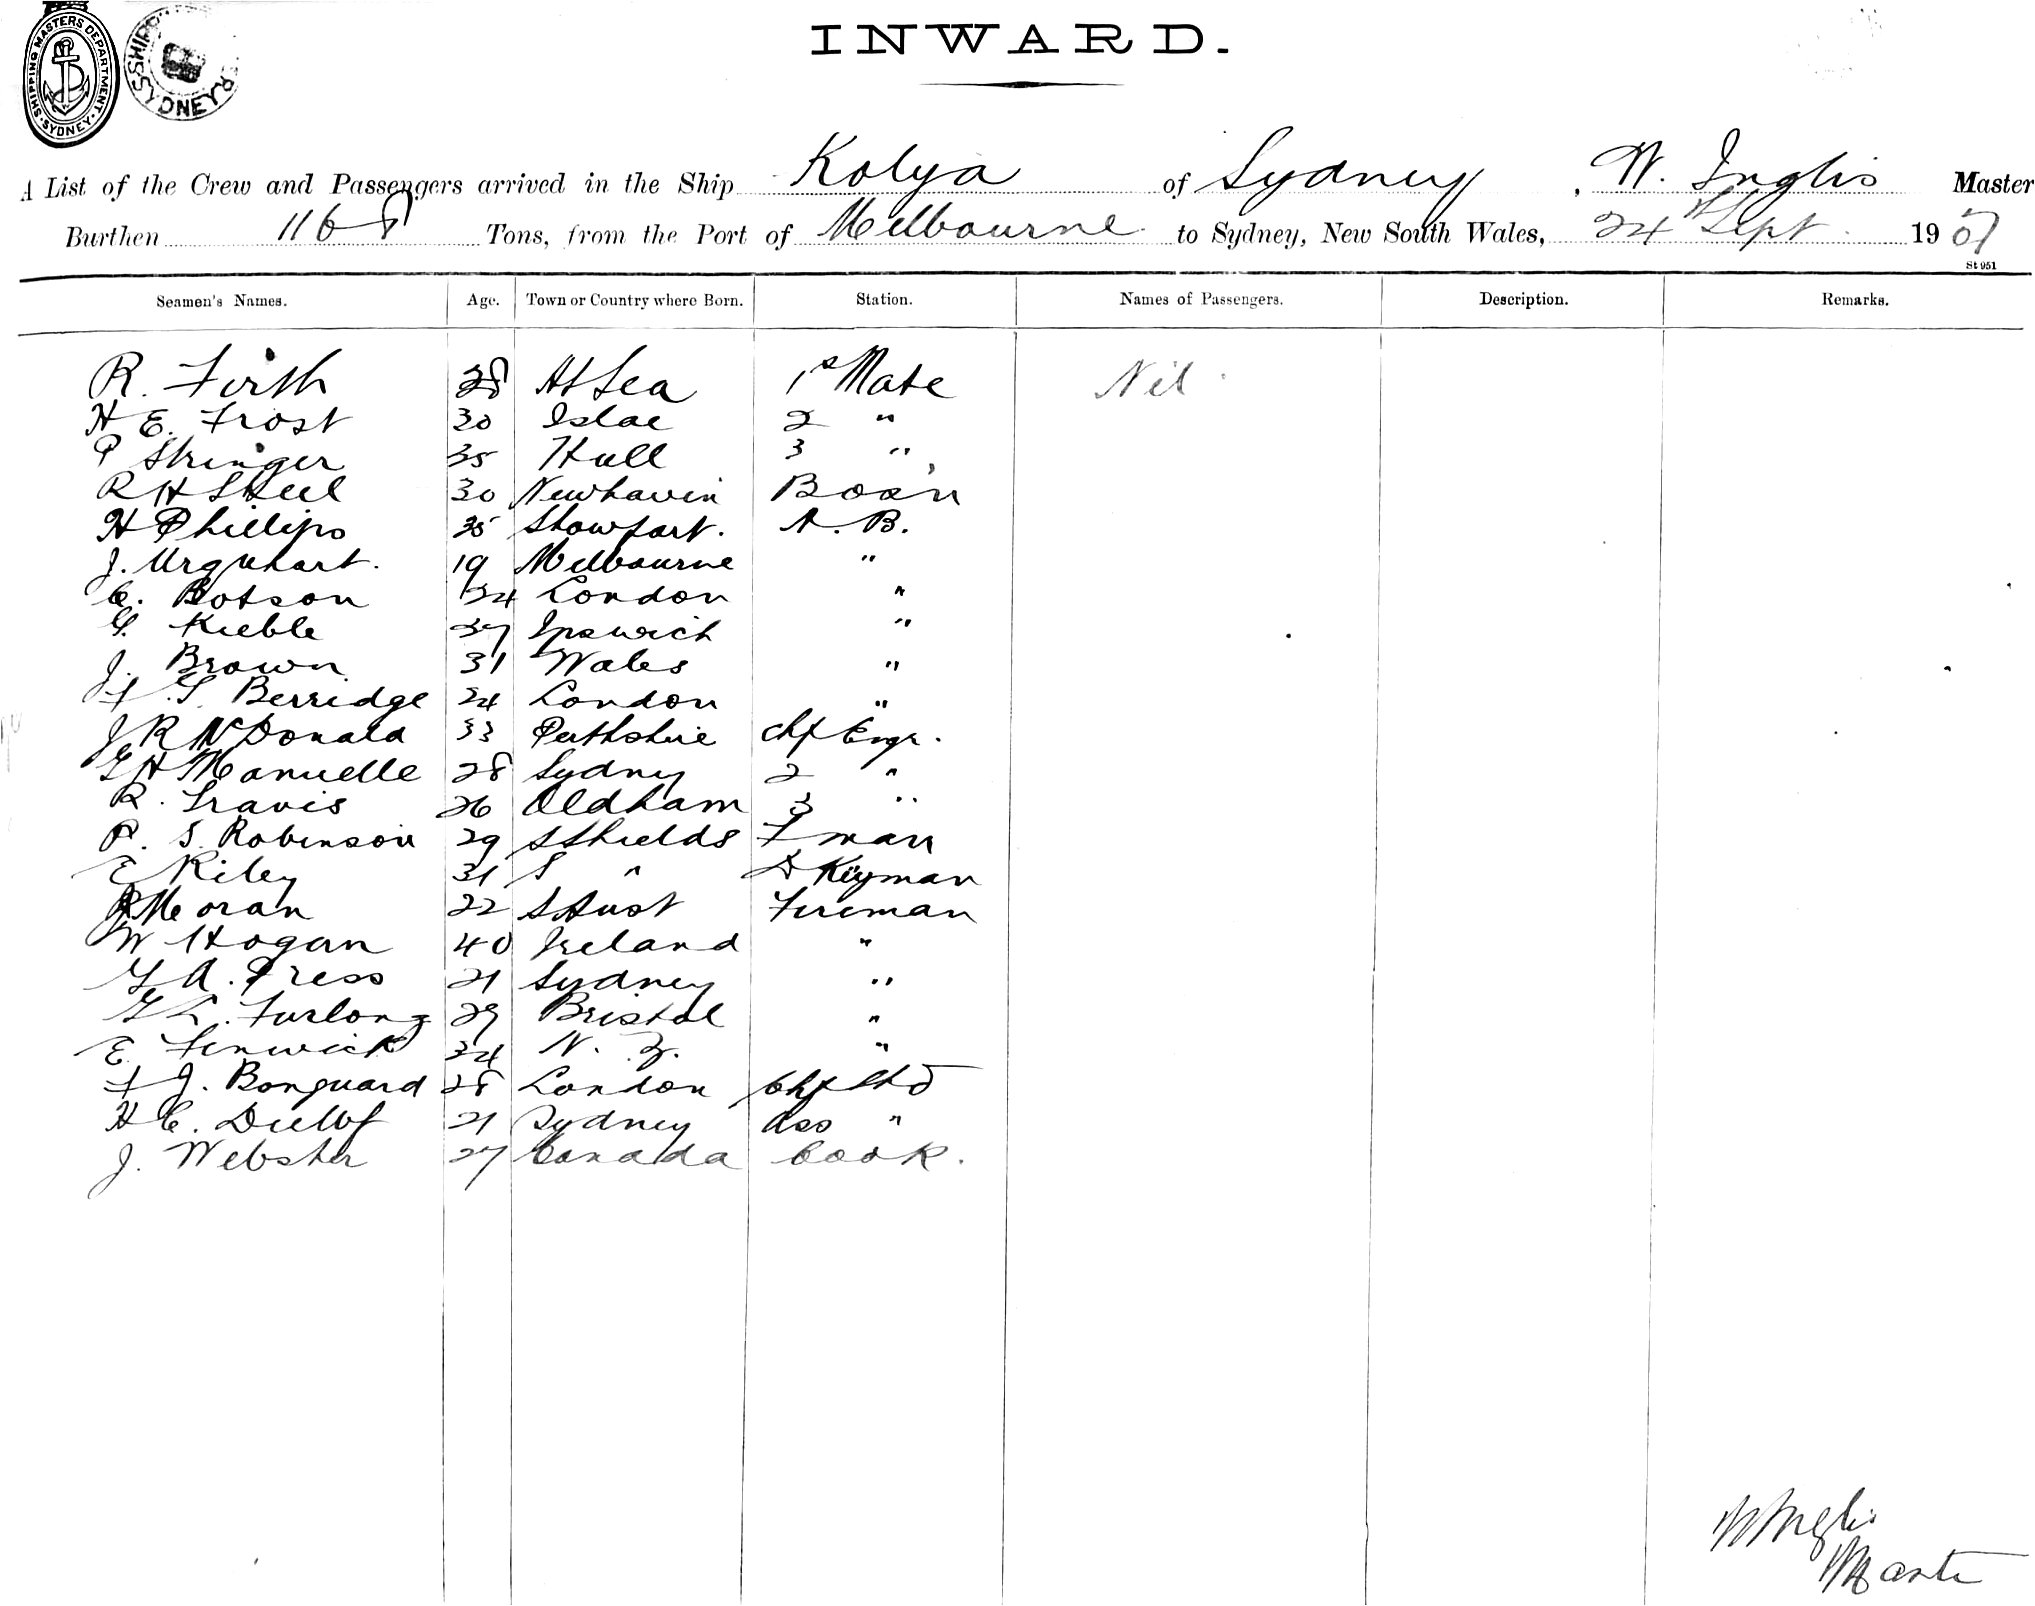 SHIPPING MASTERS DEPARTMENT. SYDNEY.
SHIPPING SYDNEY
INWARD.
A List of the Crew and Passengers arrived in the Ship Kolya of Sydney, W. Inglis Master
Burthen 1168 Tons, from the Port of Melbourne to Sydney, New South Wales, 24th Sept 1907
St 951
Seamen's Names. Age. Town or Country where Born. Station. Names of Passengers. Description. Remarks.
R. Firth 28 At Sea 1s Mate Nil
H E. Frost 30 2 "
P Stringer 35 Hull 3 "
R H Steel 30 Newhaven Bosn
H Phillips 35 A. B.
J. Urquhart. 19 Melbourne "
C. Botson 34 London "
G. Kieble 37 Ipswich "
J. Brown 31 Wales "
F. S. Berridge 24 London "
J R McDonald 33 Perthshire chf Engr.
G H Manuelle 28 Sydney 2 "
R. Travis 26 Oldham 3 "
P. S. Robinson 29 S Shields F man
E Riley 31 S " D Keyman
P Moran 22 S Aust Fireman
W Hogan 40 Ireland "
G A. Press 21 Sydney "
G L. Furlong 29 Bristol "
E Fenwick 34 N. Z. "
F J. Bonguard 28 London Chf Std
H C. 21 Sydney Ass "
J. Webster 27 Canada Cook.
W Inglis
Master